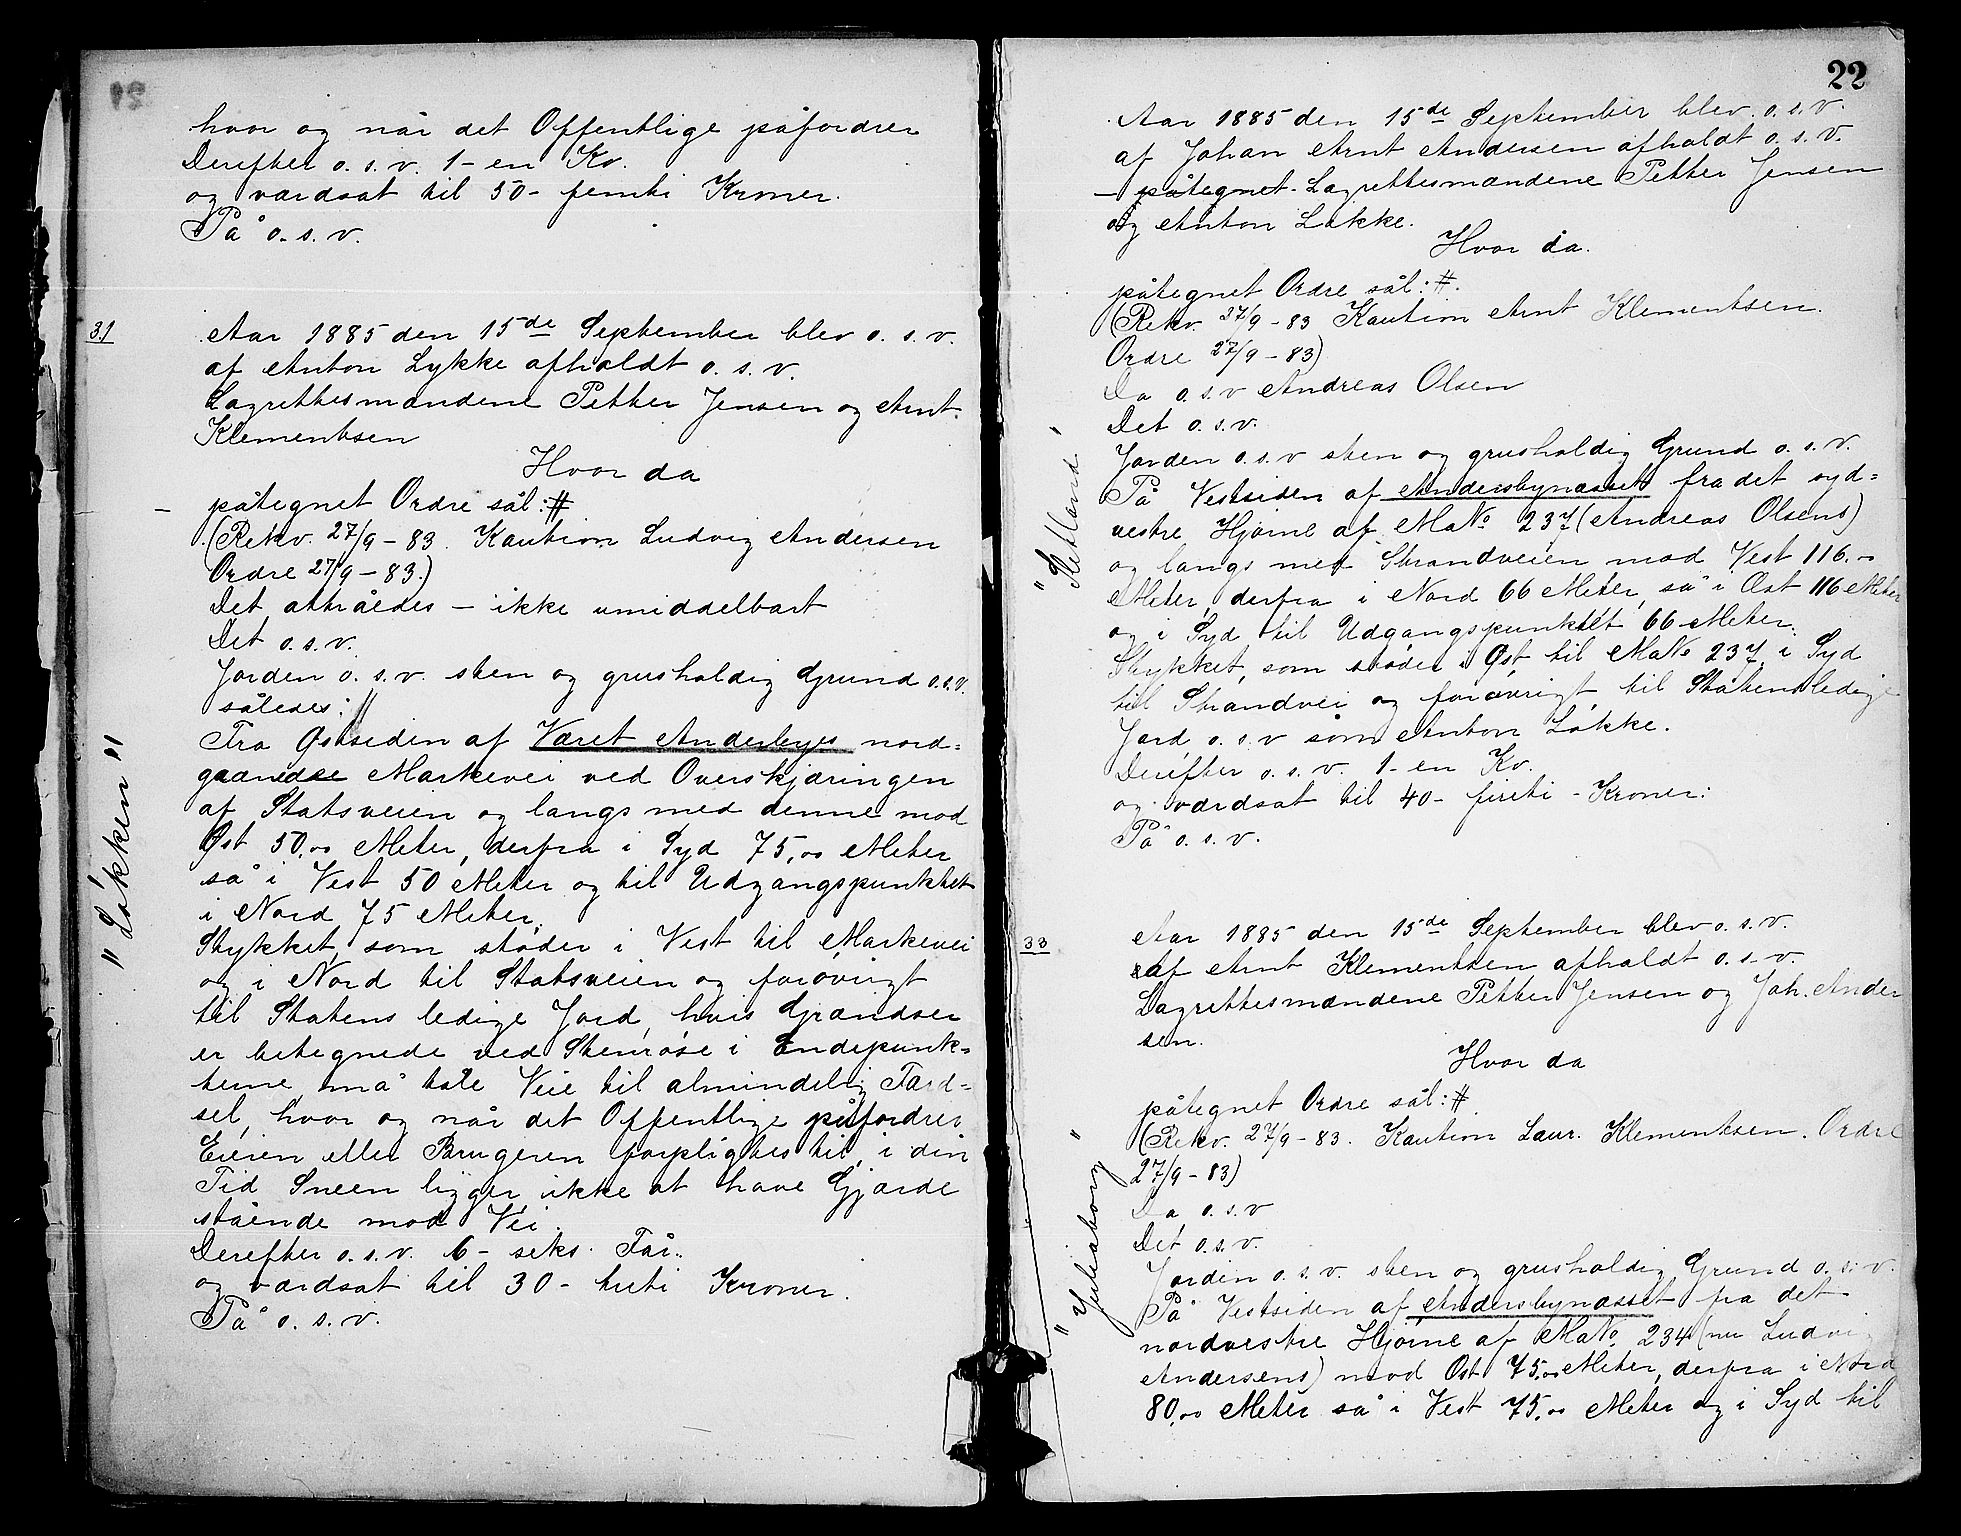 hvor og når det Offentlige påfordrer
Derefter o. s. v. 1 - en Ko.
og værdsat til 50 - femti Kroner.
På o. s. v.
31
Aar 1885 den 15de September blev o. s. v.
af Anton Lykke afholdt o. s. v.
Lagrettesmændene Petter Jensen og Arnt
Klementsen
Hvor da
- påtegnet Ordre sål: #
(Rekv. 27/9 - 83. Kaution Ludvig Andersen
Ordre 27/9 - 83.)
Det attråedes - ikke umiddelbart
Det o. s. v.
Jorden o. s. v. sten og grusholdig Grund o.s.v.
således: //
"Løkken"
Fra Østsiden af Været Andersbyes nord=
gaaende Markevei ved Overskjæringen
af Statsveien og langs med denne mod
Øst 50,00 Meter, derfra i Syd 75,00 Meter
så i Vest 50 Meter og til Udgangspunktet
i Nord 75 Meter,
Stykket, som støder i Vest til Markevei
og i Nord til Statsveien og forøvrigt
til Statens ledige Jord, hvis Grændser
er betegnede ved Stenrøse i Endepunk=
terne må tåle Veie til almindelig Færd=
sel, hvor og når det Offentlige påfordrer
Eieren eller Brugeren forpligtes til, i den
Tid Sneen ligger ikke at have Gjærde
stående mod Vei.
Derefter o. s. v. 6 - seks. Får.
og værdsat til 30 - treti Kroner.
På o. s. v.
22
Aar 1885 den 15de September blev o. s. v.
af Johan Arnt Andersen afholdt o. s. v.
- påtegnet. Lagrettesmændene Petter Jensen
og Anton Løkke.
Hvor da.
påtegnet Ordre sål: #.
(Rekv. 27/9 - 83 Kaution Arnt Klementsen.
Ordre 27/9 - 83)
Da o. s. v Andreas Olsen
Det o. s. v.
Jorden o. s. v sten og grusholdig Grund o. s. v.
På Vestsiden af Andersbynæsset fra det syd=
vestre Hjørne af MaNo 237 (Andreas Olsens)
og langs med Strandveien mod Vest 116.-
Meter, derfra i Nord 66 Meter, så i Øst 116 Meter
og i Syd til Udgangspunktet 66 Meter.
Stykket, som støder i Øst til MaNo 237, i Syd
til Strandvei og forøvrigt til Statens ledige
Jord, o. s. v som Anton Løkke.
Derefter o. s. v. 1 - en Ko.
og værdsat til 40 - firti - Kroner.
På o. s. v.
33
Aar 1885 den 15de September blev o. s. v.
af Arnt Klementsen afholdt o. s. v.
Lagrettesmændene Petter Jensen og Joh. Ander
sen.
Hvor da
påtegnet Ordre sål: #
(Rekv. 27/9 - 83. Kaution Laur. Klementsen. Ordre
27/9 - 83)
Da o. s. v
Det o. s. v.
Jorden o. s. v. sten og grusholdig Grund o. s. v.
På Vestsiden af Andersbynæsset fra det
nordvestre Hjørne af MaNo. 234 (nu Ludvig
Andersens) mod Øst 75,00 Meter, derfra i Nord
80,00 Meter så i Vest 75,00 Meter og i Syd til